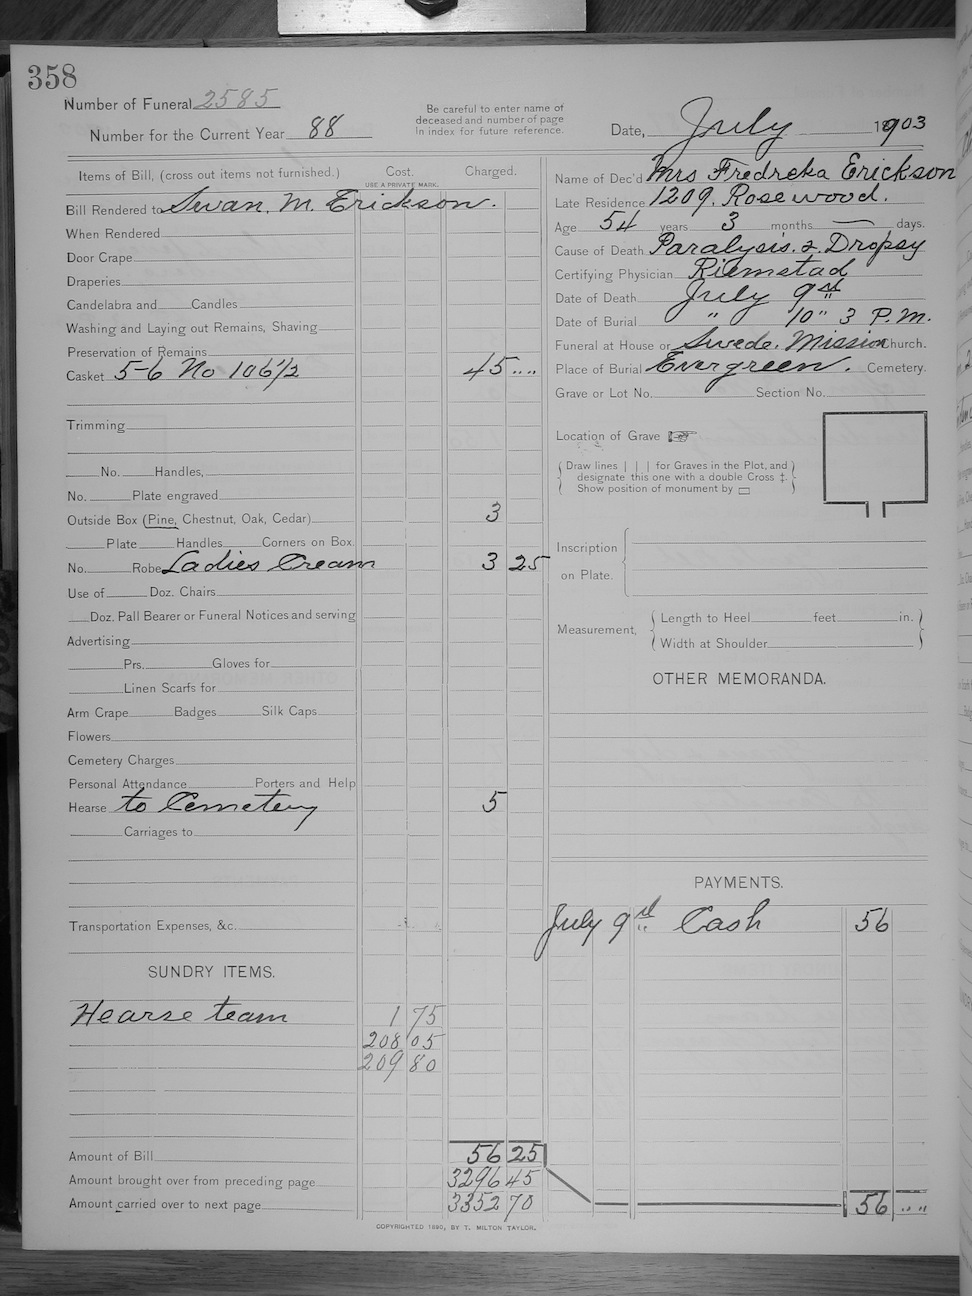 358
Number of Funeral 2585
Number for the Current Year 88
Be careful to enter name of
deceased and number of page
in index for future reference.
Date, July 1903
Items of Bill, (cross out items not furnished.) Cost. Charged.
USE A PRIVATE MARK.
Bill Rendered to Swan. M. Erickson.
When Rendered
Door Crape
Draperies
Candelabra and Candles
Washing and Laying out Remains, Shaving
Preservation of Remains
Casket 5-6 No 106 1/2 45 ....
Trimming
No. Handles,
No. Plate engraved
Outside Box (Pine, Chestnut, Oak, Cedar) 3
Plate Handles Corners on Box.
No. Robe Ladies Cream 3 25
Use of Doz. Chairs
Doz. Pall Bearer or Funeral Notices and serving
Advertising
Prs. Gloves for
Linen Scarfs for
Arm Crape Badges Silk Caps
Flowers
Cemetery Charges
Personal Attendance Porters and Help
Hearse to Cemetery 5
Carriages to
Transportation Expenses, &c.
SUNDRY ITEMS.
Hearse team 1 75
208 05
209 80
Amount of Bill 56 25
Amount brought over from preceding page 3296 45
Amount carried over to next page 3352 70
Name of Dec'd Mrs Fredreka Erickson
Late Residence 1209. Rosewood.
Age 54 years 3 months — days.
Cause of Death Paralysis. & Dropsy
Certifying Physician Riemstad
Date of Death July 9th
Date of Burial " 10" 3 P.M.
Funeral at House or Swede. Mission Church.
Place of Burial Evergreen. Cemetery.
Grave or Lot No. Section No.
Location of Grave
Draw lines | | | for Graves in the Plot, and
designate this one with a double Cross ‡.
Show position of monument by ▭
Inscription
on Plate.
Measurement, Length to Heel feet in.
Width at Shoulder
OTHER MEMORANDA.
PAYMENTS.
July 9th Cash 56
56 ....
COPYRIGHTED 1890, BY T. MILTON TAYLOR.